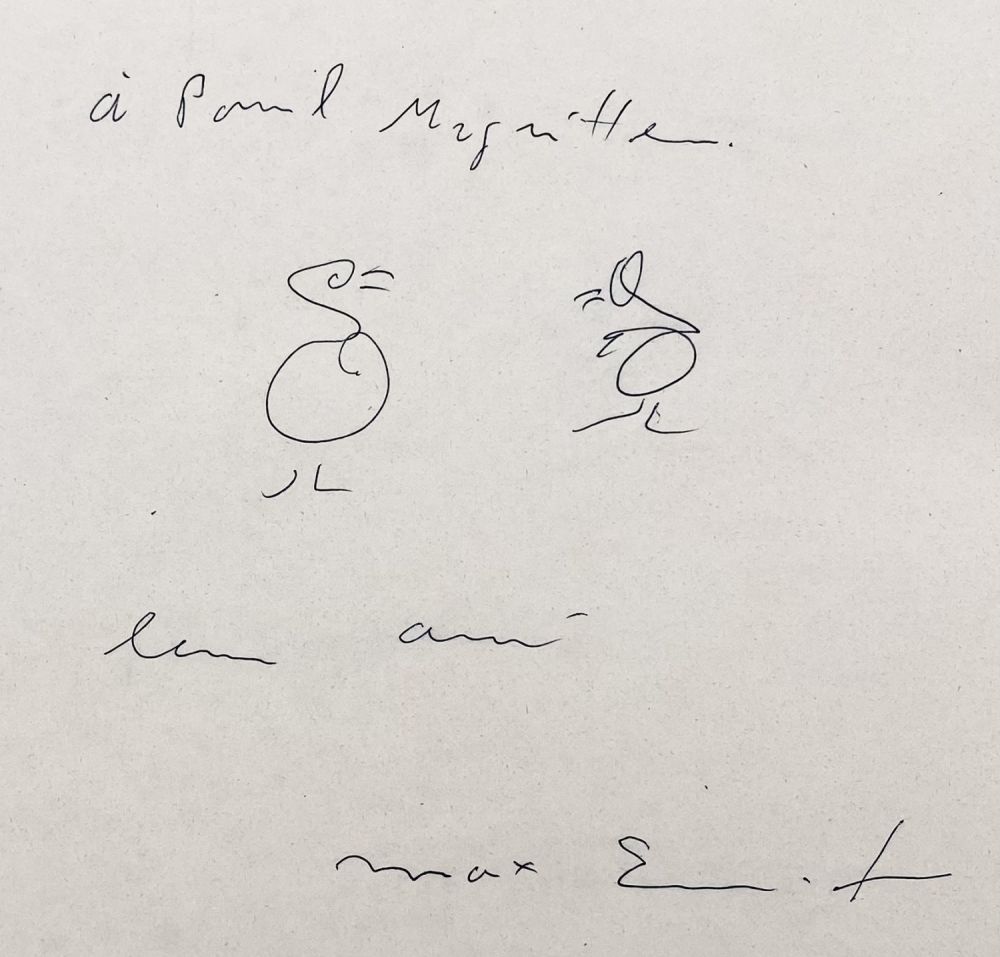 à Paul Magritte.
leur ami
max Ernst